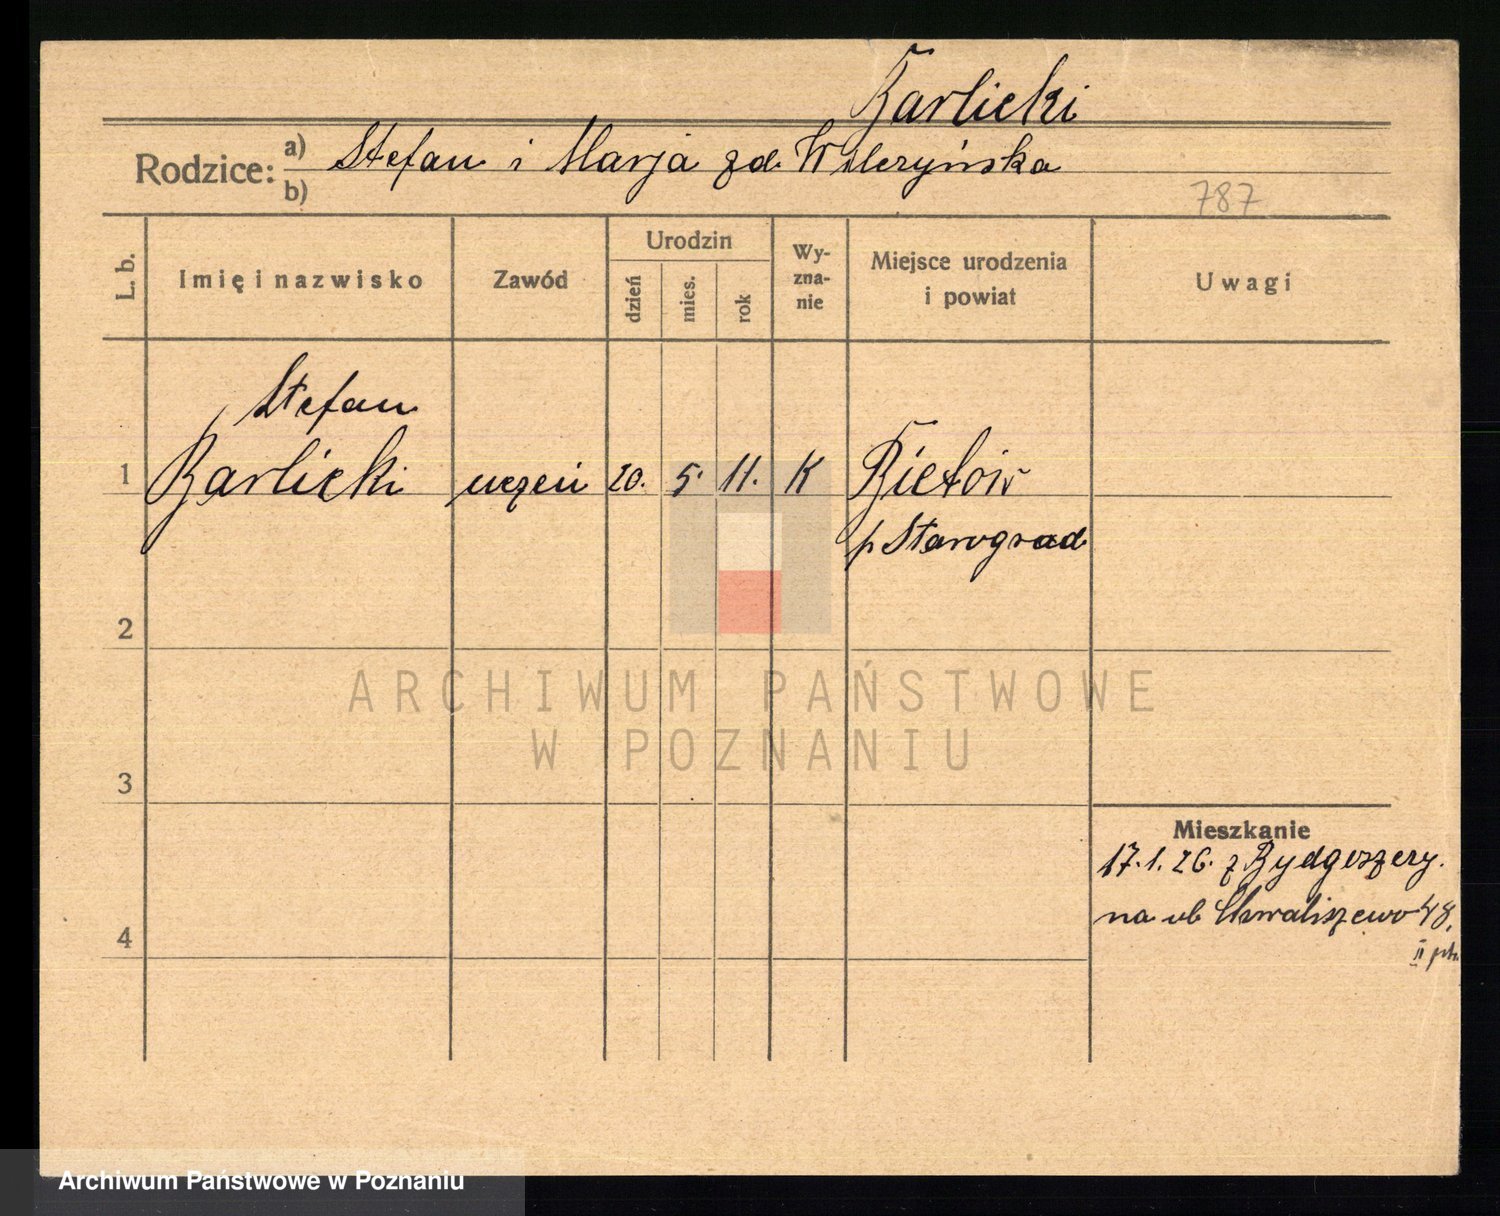 Barlicki
Rodzice: a) Stefan i Marja zd. Wilczyńska
b)
787
L. b.
Imię i nazwisko
Zawód
Urodzin
dzień
mies.
rok
Wy-
zna-
nie
Miejsce urodzenia
i powiat
Uwagi
Stefan
1 Barlicki uczeń 20. 5. 11. K
p Starograd
2
ARCHIWUM PAŃSTWOWE
W POZNANIU
3
Mieszkanie
17.1.26. z Bydgoszczy.
na ul Chwaliszewo 48,
II ptr.
4
Archiwum Państwowe w Poznaniu